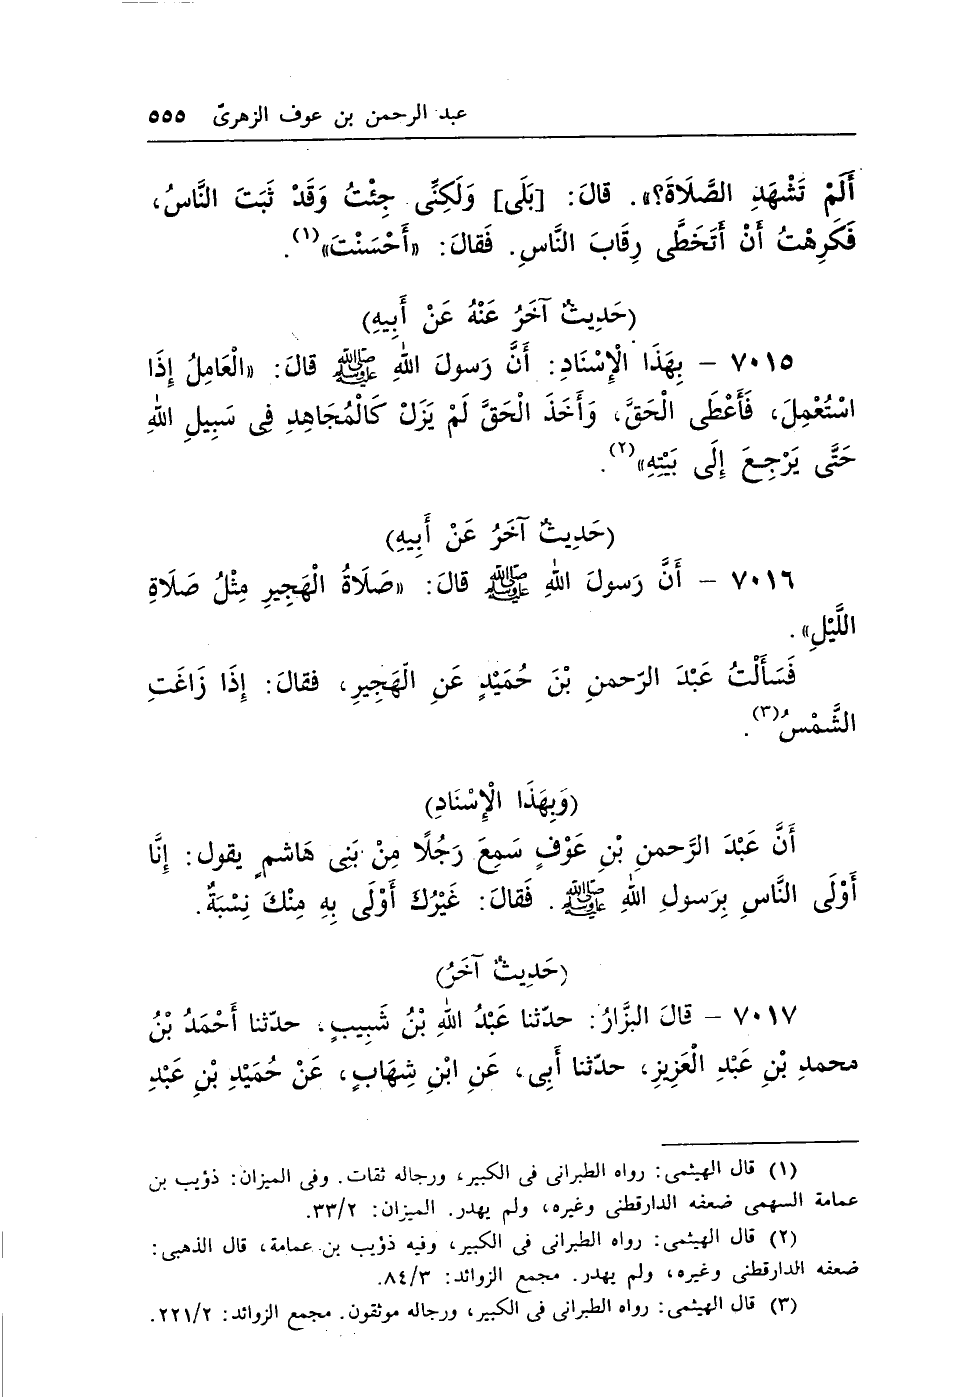 عبد الرحمن بن عوف الزهرىّ ٥٥٥
أَلَمْ تَشْهَدِ الصَّلَاةَ؟». قالَ: [بَلَى] وَلَكِنِّى جِئْتُ وَقَدْ ثَبَتَ النَّاسُ،
فَكَرِهْتُ أَنْ أَتَخَطَّى رِقَابَ النَّاسِ. فَقالَ: «أَحْسَنْتَ»(١).
(حَدِيثٌ آخَرُ عَنْهُ عَنْ أَبِيهِ)
٧٠١٥ – بِهَذَا الْإِسْنَادِ: أَنَّ رَسولَ اللهِ ﷺ قالَ: «الْعَامِلُ إِذَا
اسْتُعْمِلَ، فَأَعْطَى الْحَقَّ، وَأَخَذَ الْحَقَّ لَمْ يَزَلْ كَالْمُجَاهِدِ فِى سَبِيلِ اللهِ
حَتَّى يَرْجِعَ إِلَى بَيْتِهِ»(٢).
(حَدِيثٌ آخَرُ عَنْ أَبِيهِ)
٧٠١٦ – أَنَّ رَسولَ اللهِ ﷺ قالَ: «صَلَاةُ الْهَجِيرِ مِثْلُ صَلَاةِ
اللَّيْلِ».
فَسَأَلْتُ عَبْدَ الرّحمنِ بْنَ حُمَيْدٍ عَنِ الْهَجِيرِ، فقالَ: إِذَا زَاغَتِ
الشَّمْسُ(٣).
(وَبِهَذَا الْإِسْنَادِ)
أَنَّ عَبْدَ الرَّحمنِ بْنِ عَوْفٍ سَمِعَ رَجُلًا مِنْ بَنِى هَاشمٍ يقول: إِنَّا
أَوْلَى النَّاسِ بِرَسولِ اللهِ ﷺ. فَقالَ: غَيْرُكَ أَوْلَى بِهِ مِنْكَ نِسْبَةٌ.
(حَدِيثٌ آخَرُ)
٧٠١٧ – قالَ البَزَّارُ: حدّثنا عَبْدُ اللهِ بْنُ شَبِيبٍ، حدّثنا أَحْمَدُ بْنُ
محمدِ بْنِ عَبْدِ الْعَزِيزِ، حدّثنا أَبِى، عَنِ ابْنِ شِهَابٍ، عَنْ حُمَيْدِ بْنِ عَبْدِ
(١) قال الهيثمى: رواه الطبرانى فى الكبير، ورجاله ثقات. وفى الميزان: ذؤيب بن
عمامة السهمى ضعفه الدارقطنى وغيره، ولم يهدر. الميزان: ٣٣/٢.
(٢) قال الهيثمى: رواه الطبرانى فى الكبير، وفيه ذؤيب بن عمامة، قال الذهبى:
ضعفه الدارقطنى وغيره، ولم يهدر. مجمع الزوائد: ٨٤/٣.
(٣) قال الهيثمى: رواه الطبرانى فى الكبير، ورجاله موثقون. مجمع الزوائد: ٢٢١/٢.